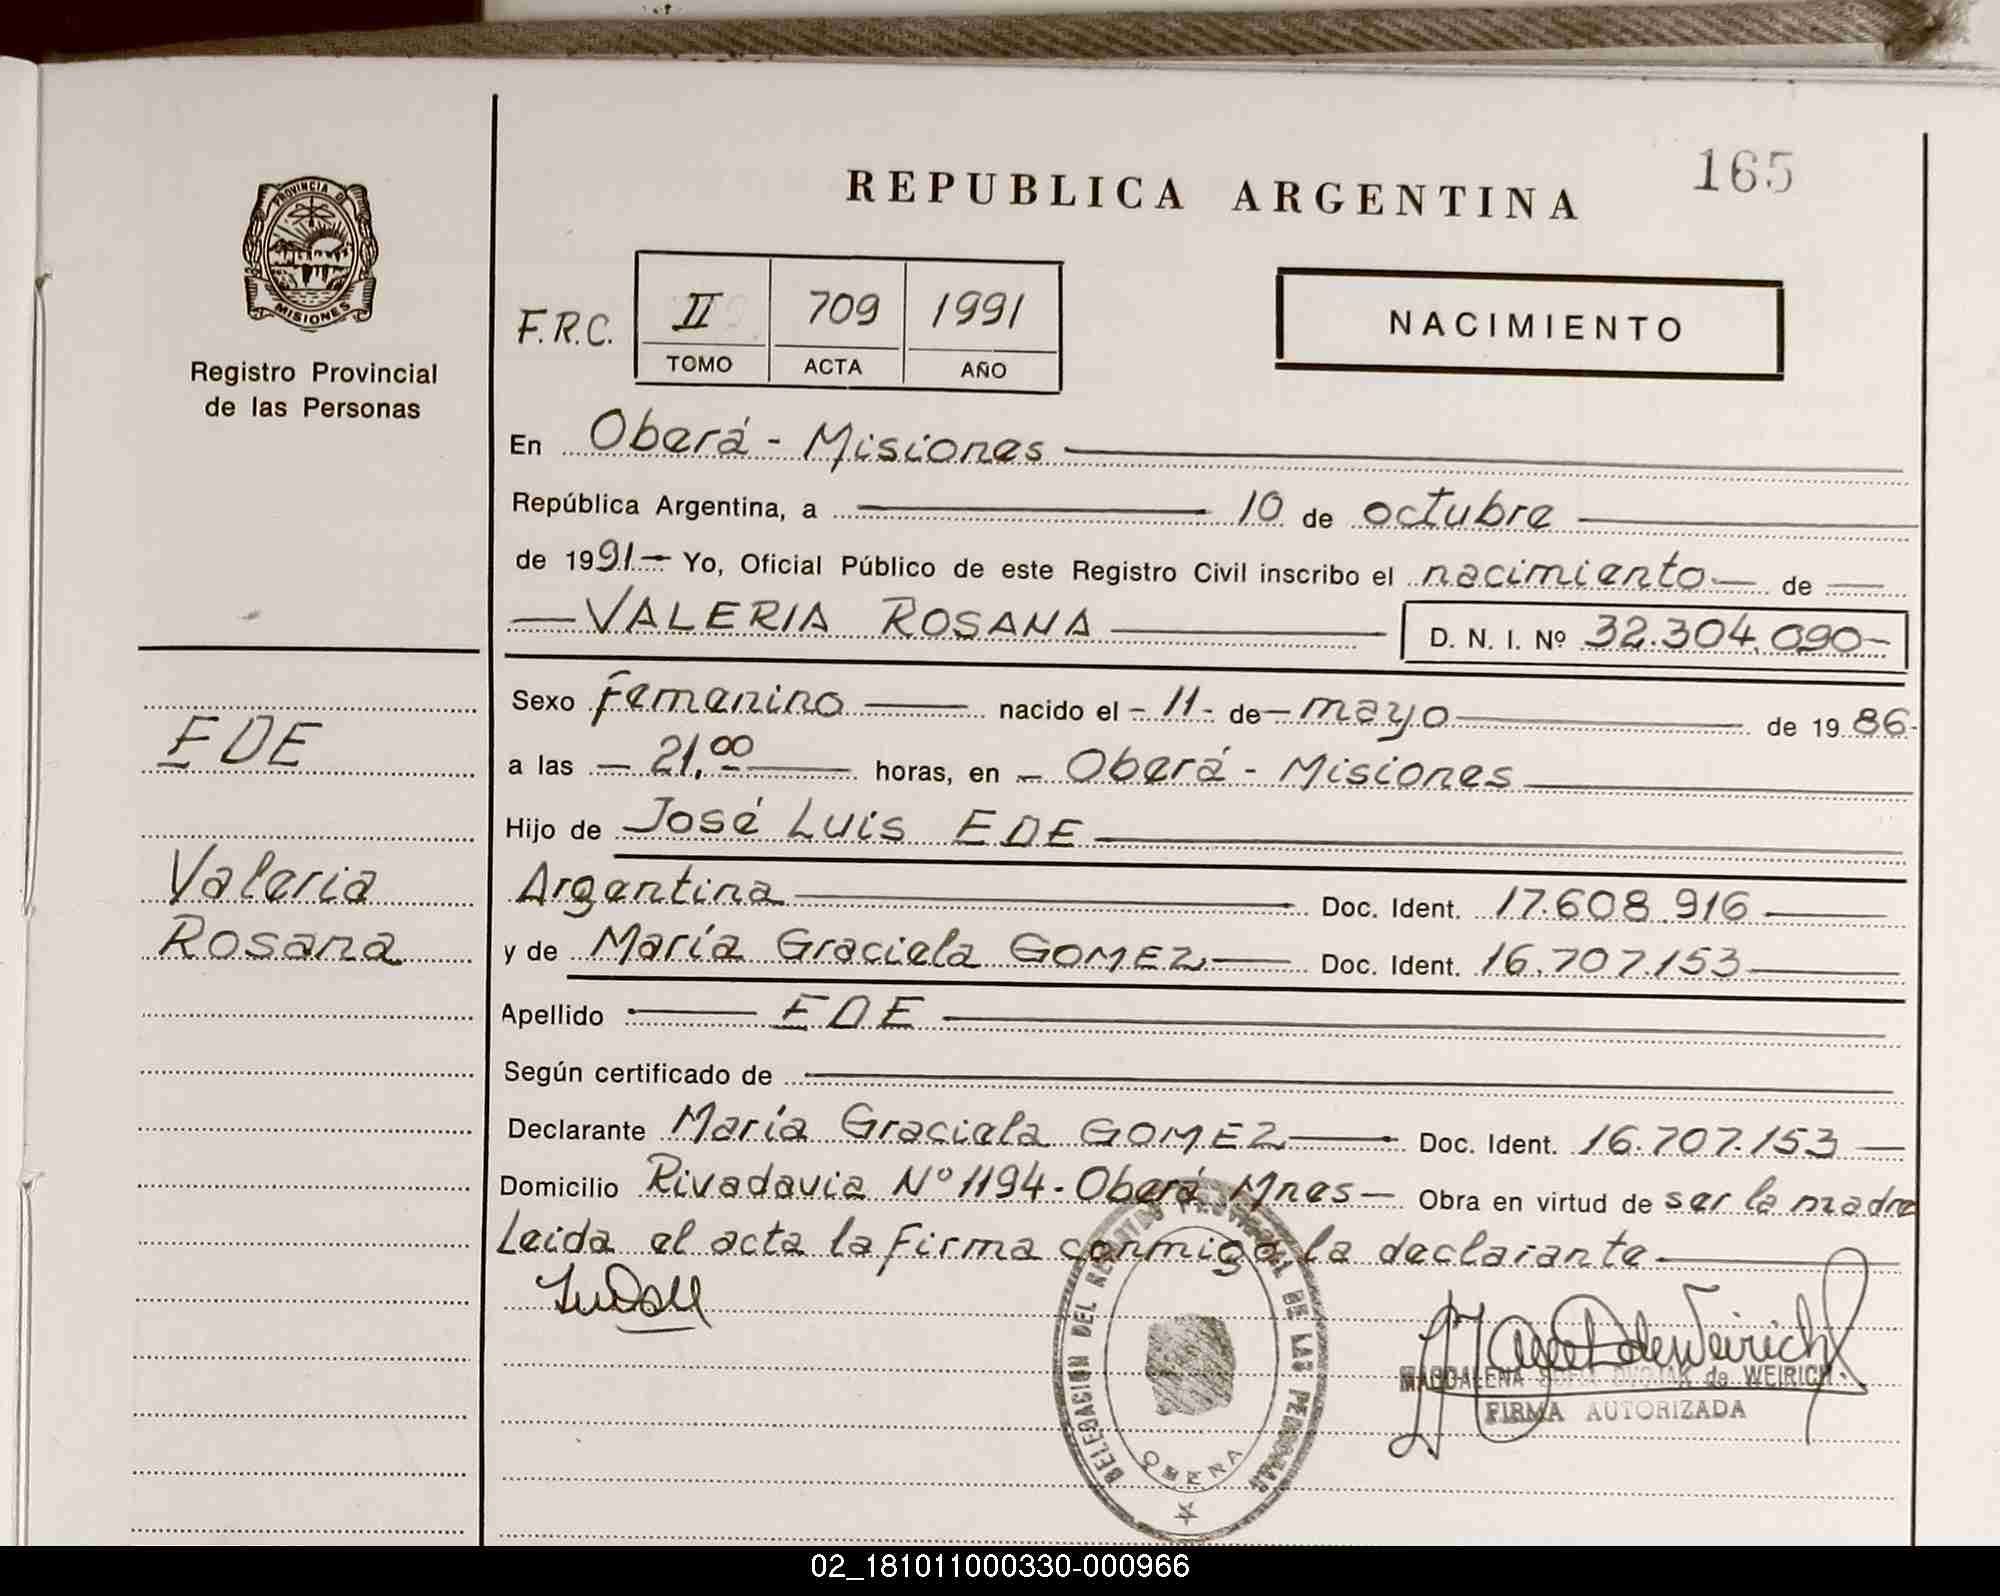 165
REPUBLICA ARGENTINA
PROVINCIA D
MISIONES
Registro Provincial
de las Personas
F.R.C.
II 709 1991
TOMO ACTA AÑO
NACIMIENTO
En Oberá - Misiones
República Argentina, a 10 de octubre
de 1991 Yo, Oficial Público de este Registro Civil inscribo el nacimiento de
VALERIA ROSANA D. N. I. Nº 32.304.090
Sexo Femenino nacido el - 11 - de mayo de 1986
a las 21,00 horas, en Oberá - Misiones
Hijo de José Luis EDE
Argentina Doc. Ident. 17.608.916
y de María Graciela GOMEZ Doc. Ident. 16.707.153
Apellido EDE
Según certificado de
Declarante María Graciela GOMEZ Doc. Ident. 16.707.153
Domicilio Rivadavia Nº 1194 - Oberá Mnes Obra en virtud de ser la madre
Leida el acta la firma conmigo la declarante
EDE
Valeria
Rosana
DELEGACION DEL REGISTRO PROVINCIAL DE LAS PERSONAS
OBERA
MAGDALENA de WEIRICH
FIRMA AUTORIZADA
02_181011000330-000966